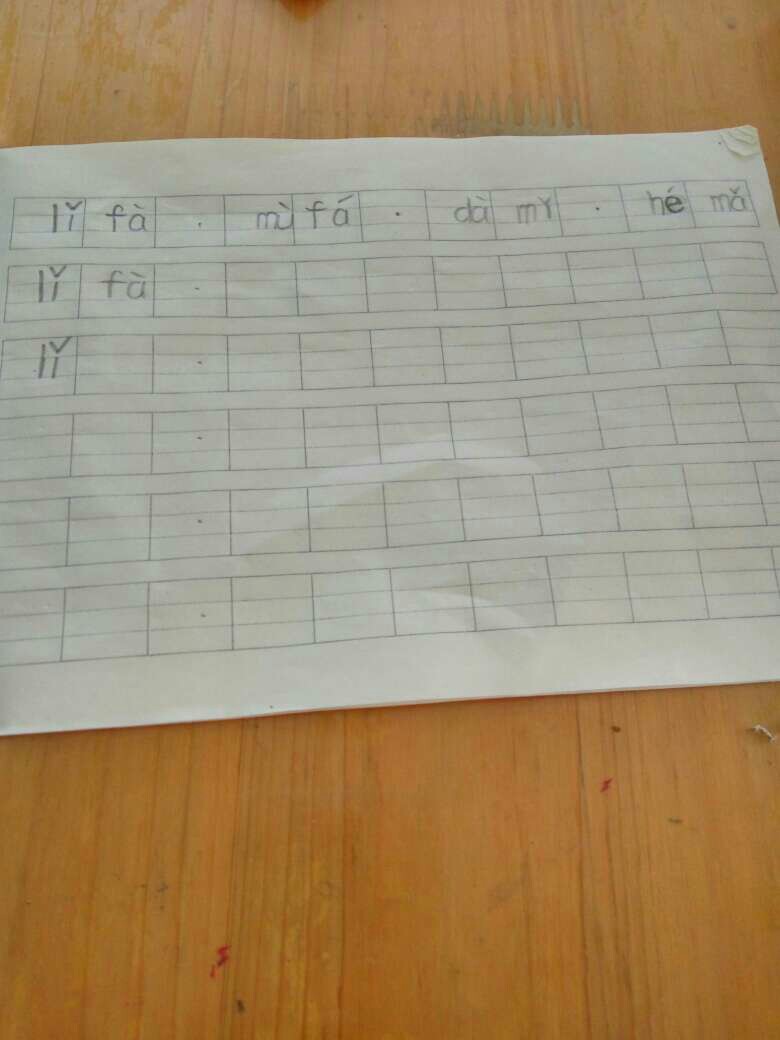 lǐ fà · mì fá · dà mǐ · hé mǎ
lǐ fà ·
lǐ ·
·
·
·